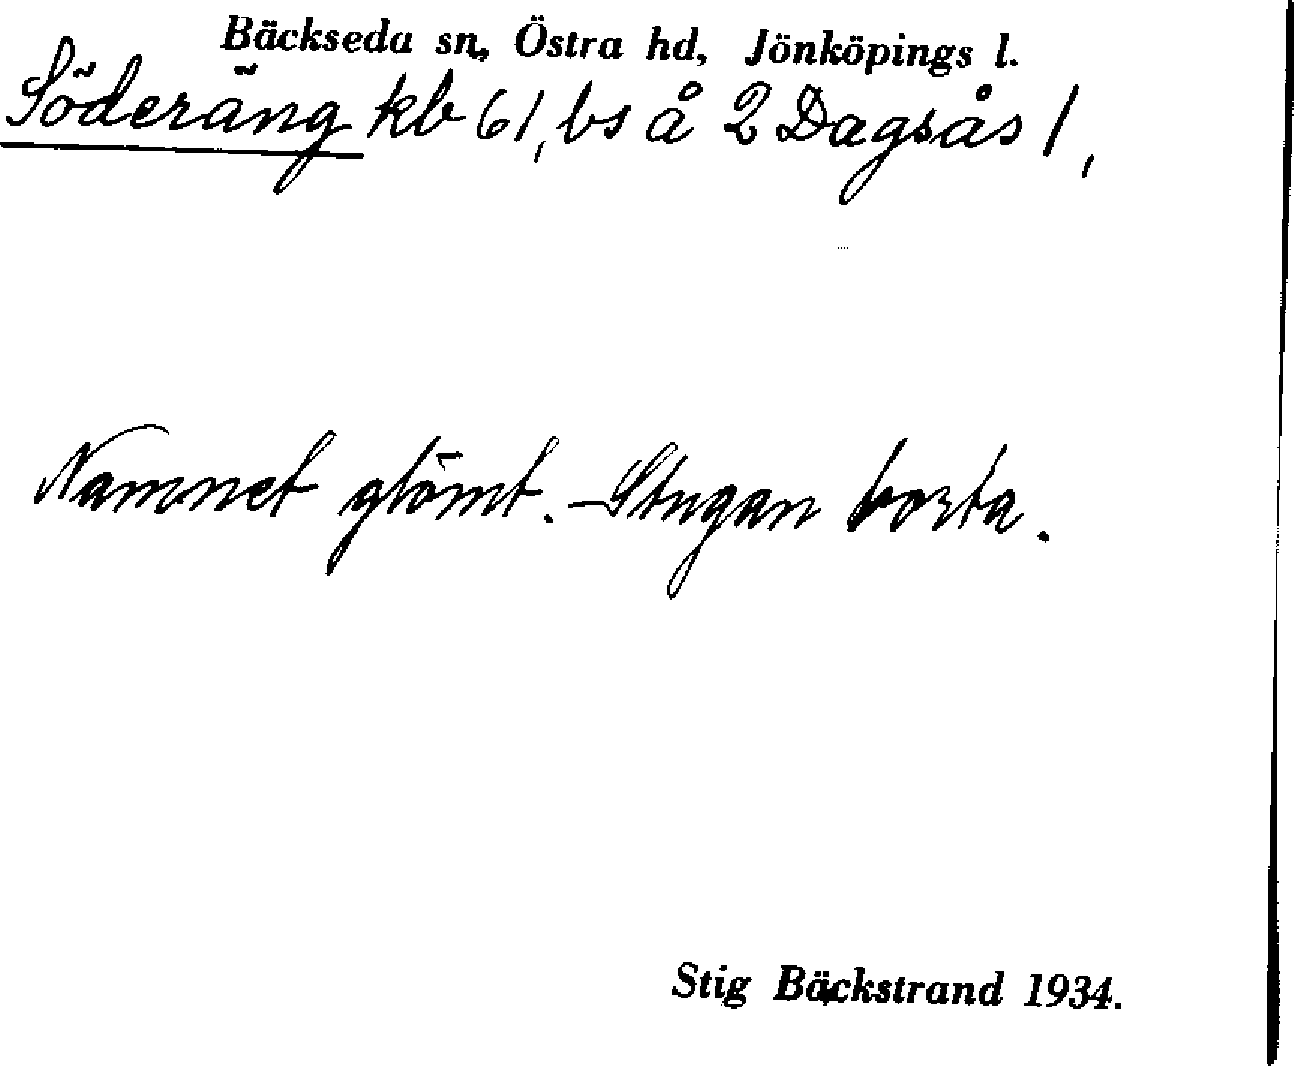 Bäckseda sn, Östra hd, Jönköpings l.
Söderäng kb 61, bs å 2 Dagsås 1,
Namnet glömt. - Stugan borta.
Stig Bäckstrand 1934.